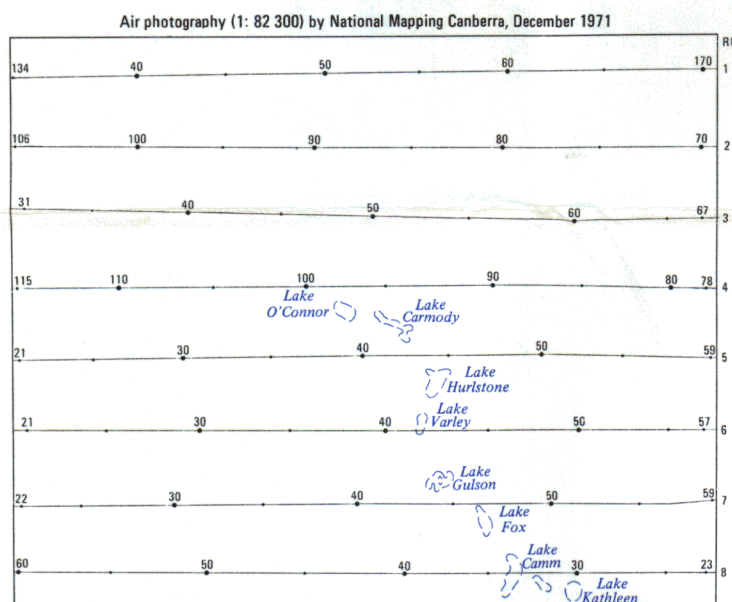 Air photography (1: 82 300) by National Mapping Canberra, December 1971
134 40 50 60 170 1
106 100 90 80 70 2
31 40 50 60 67 3
115 110 100 90 80 78 4
Lake
O'Connor
Lake
Carmody
21 30 40 50 59 5
Lake
Hurlstone
Lake
Varley
21 30 40 50 57 6
Lake
Gulson
22 30 40 50 59 7
Lake
Fox
Lake
Camm
60 50 40 30 23 8
Lake
Kathleen